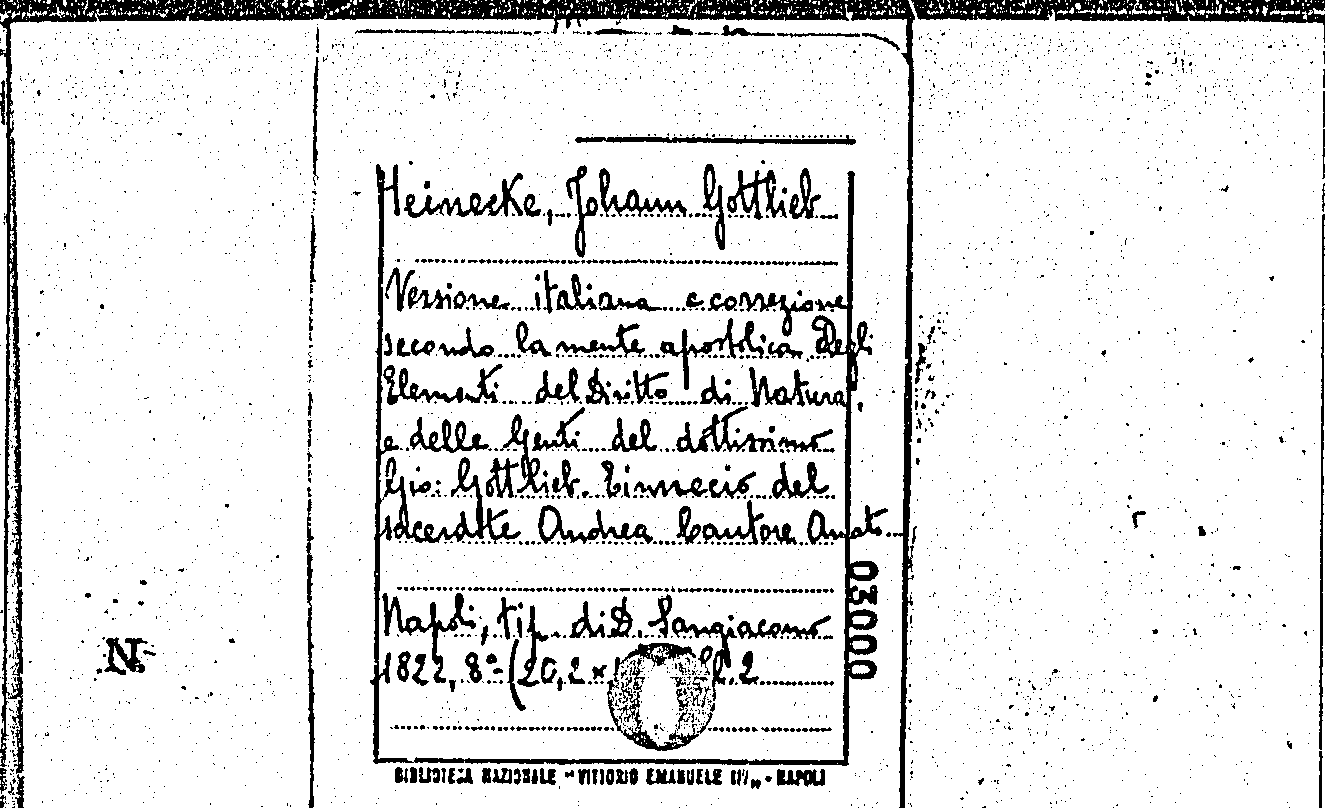 Heinecke, Johann Gottlieb
Versione italiana e correzione
secondo la mente apostolica Degli
Elementi del Diritto di Natura,
e delle Genti del dottissimo
Gio: Gottlieb. Einnecio del
sacerdote Andrea Cautore Amato
03000
Napoli, tip. di D. Sangiacomo
1822, 8º (20,2 x 2
N
BIBLIOTECA NAZIONALE "VITTORIO EMANUELE III" - NAPOLI